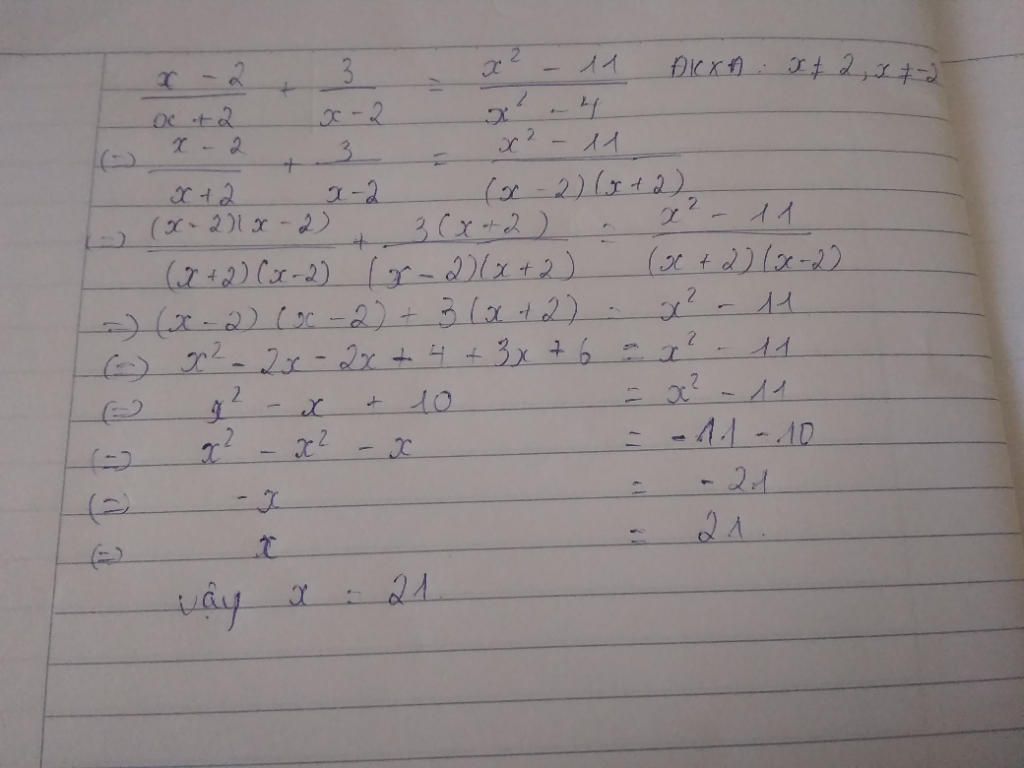 x - 2 / x + 2 + 3 / x - 2 = x² - 11 / x² - 4 ĐKXĐ : x ≠ 2, x ≠ -2
(=) x - 2 / x + 2 + 3 / x - 2 = x² - 11 / (x - 2)(x + 2)
(=) (x - 2)(x - 2) / (x + 2)(x - 2) + 3(x + 2) / (x - 2)(x + 2) = x² - 11 / (x + 2)(x - 2)
=) (x - 2)(x - 2) + 3(x + 2) = x² - 11
(=) x² - 2x - 2x + 4 + 3x + 6 = x² - 11
(=) x² - x + 10 = x² - 11
(=) x² - x² - x = -11 - 10
(=) -x = -21
(=) x = 21.
vậy x = 21.